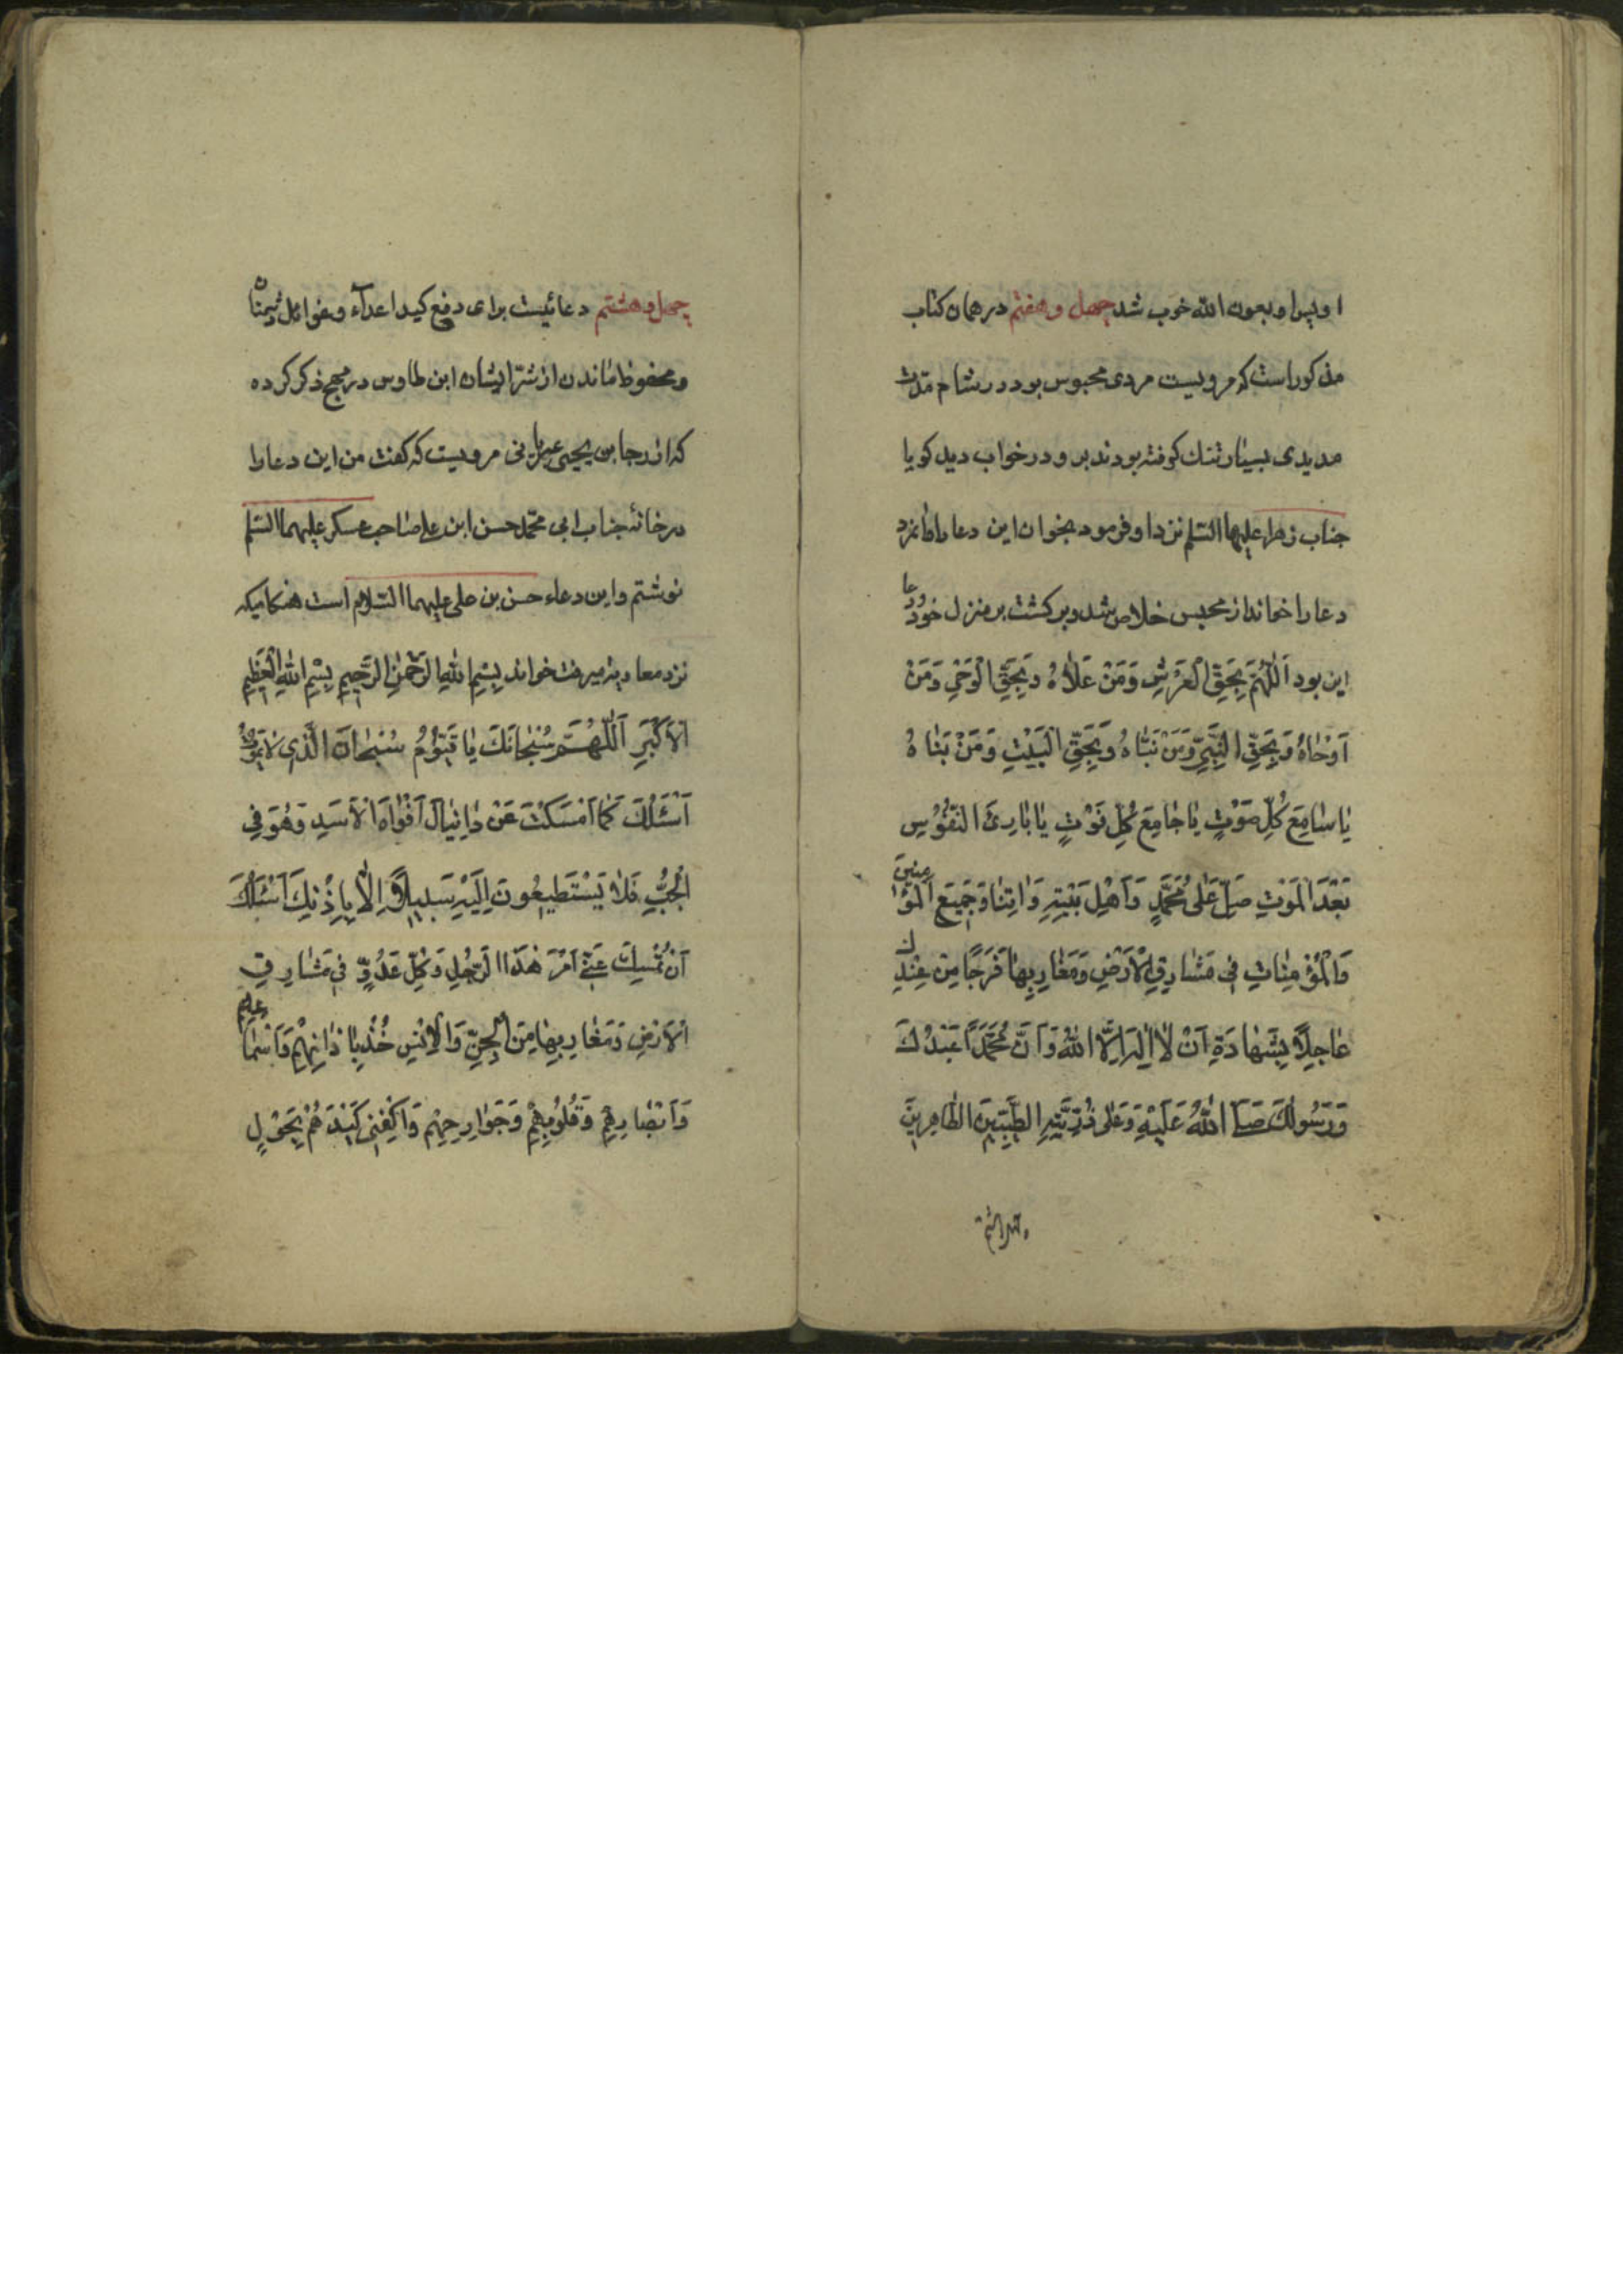 او پس او بعون الله خوب شد چهل و هفتم در همان کتاب
مذکور است که مرویست مردی محبوس بود در شام مدت
مدیدی بسیار تنک کرفته بودند بر و در خواب دید کویا
جناب زهرا علیها السلم نزد او فرمود بخوان این دعا را
دعا را خواند از محبس خلاص شد و برکشت بر منزل خود دعا
این بود اَللّهُمَّ بِحَقِّ الْعَرْشِ وَمَنْ عَلاهُ وَبِحَقِّ الْوَحْیِ وَمَنْ
اَوْحاهُ وَبِحَقِّ النَّبِیِّ وَمَنْ نَبَّاهُ وَبِحَقِّ الْبَیْتِ وَمَنْ بَناهُ
یا سامِعَ کُلِّ صَوْتٍ یا جامِعَ کُلِّ فَوْتٍ یا بارِئَ النُّفُوسِ
بَعْدَ الْمَوْتِ صَلِّ عَلی مُحَمَّدٍ وَاَهْلِ بَیْتِهِ وَاتِنا وَجَمِیعَ الْمُؤْمِنِینَ
وَالْمُؤْمِناتِ فِی مَشارِقِ الْاَرْضِ وَمَغارِبِها فَرَجًا مِنْ عِنْدِكَ
عاجِلًا بِشَهادَةِ اَنْ لا اِلهَ اِلَّا اللهُ وَاَنَّ مُحَمَّدًا عَبْدُكَ
وَرَسُولُكَ صَلَّی اللهُ عَلَیْهِ وَعَلی ذُرِّیَّتِهِ الطَّیِّبِینَ الطّاهِرِینَ
چهل و هشتم دعائیست برای دفع کید اعداء و غوائل دشمنان
و محفوظ ماندن از شر ایشان ابن طاوس در مهج ذکر کرده
که از رجا بن یحیی مرویست که کفت من این دعا را
در خانه جناب ابی محمد حسن ابن علی صاحب عسکر علیهما السلم
نوشتم و این دعاء حسن بن علی علیهما السلام است هنکامیکه
نزد معاویه میرفت خواند بِسْمِ اللهِ الرَّحْمنِ الرَّحِیمِ بِسْمِ اللهِ الْعَظِیمِ
الْاَکْبَرِ اَللّهُمَّ سُبْحانَكَ یا قَیُّومُ سُبْحانَ الَّذِی لا یَمُوتُ
اَسْئَلُكَ کَما اَمْسَکْتَ عَنْ دانِیالَ اَفْواهَ الْاَسَدِ وَهُوَ فِی
الْجُبِّ فَلا یَسْتَطِیعُونَ اِلَیْهِ سَبِیلًا اِلّا بِاِذْنِكَ اَسْئَلُكَ
اَنْ تُمْسِكَ عَنِّی اَمْرَ هذَا الرَّجُلِ وَکُلِّ عَدُوٍّ فِی مَشارِقِ
الْاَرْضِ وَمَغارِبِها مِنَ الْجِنِّ وَالْاِنْسِ خُذْ بِاذانِهِمْ وَاَسْماعِهِمْ
وَاَبْصارِهِمْ وَقُلُوبِهِمْ وَجَوارِحِهِمْ وَاکْفِنِی کَیْدَهُمْ بِحَوْلٍ